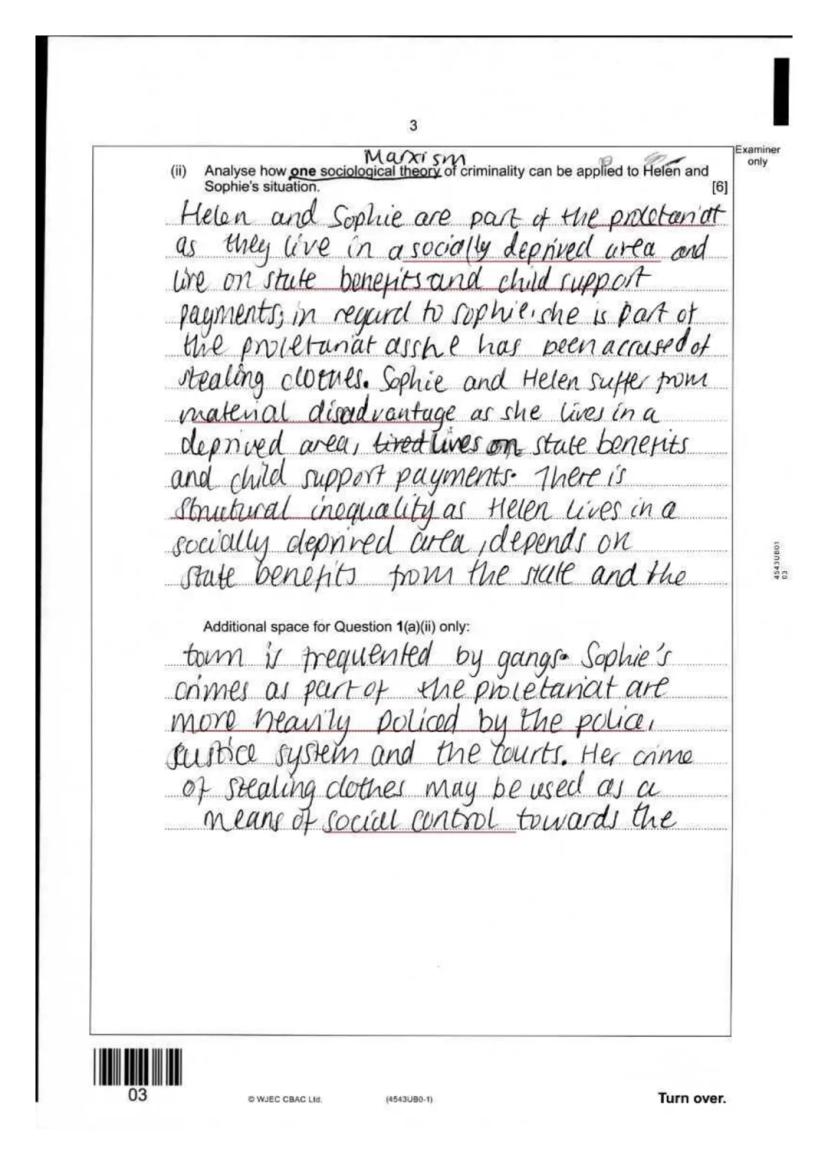 3
Examiner
only
Marxism
(ii) Analyse how one sociological theory of criminality can be applied to Helen and
Sophie's situation. [6]
Helen and Sophie are part of the proletariat
as they live in a socially deprived area and
live on state benefits and child support
payments; in regard to Sophie, she is part of
the proletariat as she has been accused of
stealing clothes. Sophie and Helen suffer from
material disadvantage as she lives in a
deprived area, lives on state benefits
and child support payments. There is
structural inequality as Helen lives in a
socially deprived area, depends on
state benefits from the state and the
Additional space for Question 1(a)(ii) only:
town is frequented by gangs. Sophie's
crimes as part of the proletariat are
more heavily policed by the police,
justice system and the courts. Her crime
of stealing clothes may be used as a
means of social control towards the
4543UB01
03
03
© WJEC CBAC Ltd.
(4543UB0-1)
Turn over.